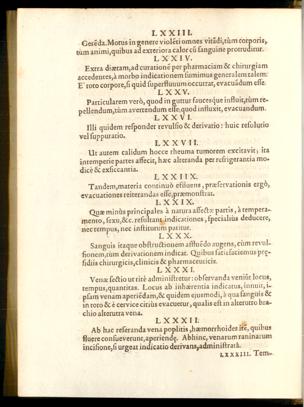 LXXIII.
Gerẽda. Motus in genere violẽti omnes vitãdi, tùm corporis,
tùm animi, quibus ad exteriora calor cũ sanguine protruditur.
LXXIV.
Extra diætam, ad curationẽ per pharmaciam & chirurgiam
accedentes, à morbo indicationem sumimus generalem talem:
E' toto corpore, si quid superfluum occurrat, evacuãdum esse.
LXXV.
Particularem verò, quod in guttur succusque influit, tùm re-
pellendum, tùm avertendum esse, quod influxit, evacuandum.
LXXVI.
Illi quidem respondet revulsio & derivatio: huic resolutio
vel suppuratio.
LXXVII.
Ut autem calidum hocce rheuma tumorem excitavit; ita
intemperie partes affecit, hæc alteranda per refrigerantia mo-
dicè & exsiccantia.
LXXIIX.
Tandem, materia continuò effluens, præservationis ergò,
evacuationes reiterandas esse, præmonstrat.
LXXIX.
Quæ minùs principales à natura affectæ partis, à tempera-
mento, sexu, &c. resultant indicationes, specialius deducere,
nec tempus, nec institutum patitur.
LXXX.
Sanguis itaque obstructionem affluẽdo augens, cùm revul-
sionem, tùm derivationem indicat. Quibus satisfacimus præ-
sidiis chirurgicis, clinicis & pharmaceuticis.
LXXXI.
Venæ sectio ut ritè administretur: observanda veniũt locus,
tempus, quantitas. Locus ab inhærentia indicatus, innuit, i-
psam venam aperiẽdam, & quidem ejusmodi, à qua sanguis &
in toto & è cervice citiùs evacuetur, qualis est in alterutro bra-
chio alterutra vena.
LXXXII.
Ab hac referanda vena poplitis, hæmorrhoides itẽ, quibus
fluere consueverunt, aperiendę. Abhinc, venarum raninarum
incisione, si urgeat indicatio derivans, administratâ.
LXXXIII. Tem-